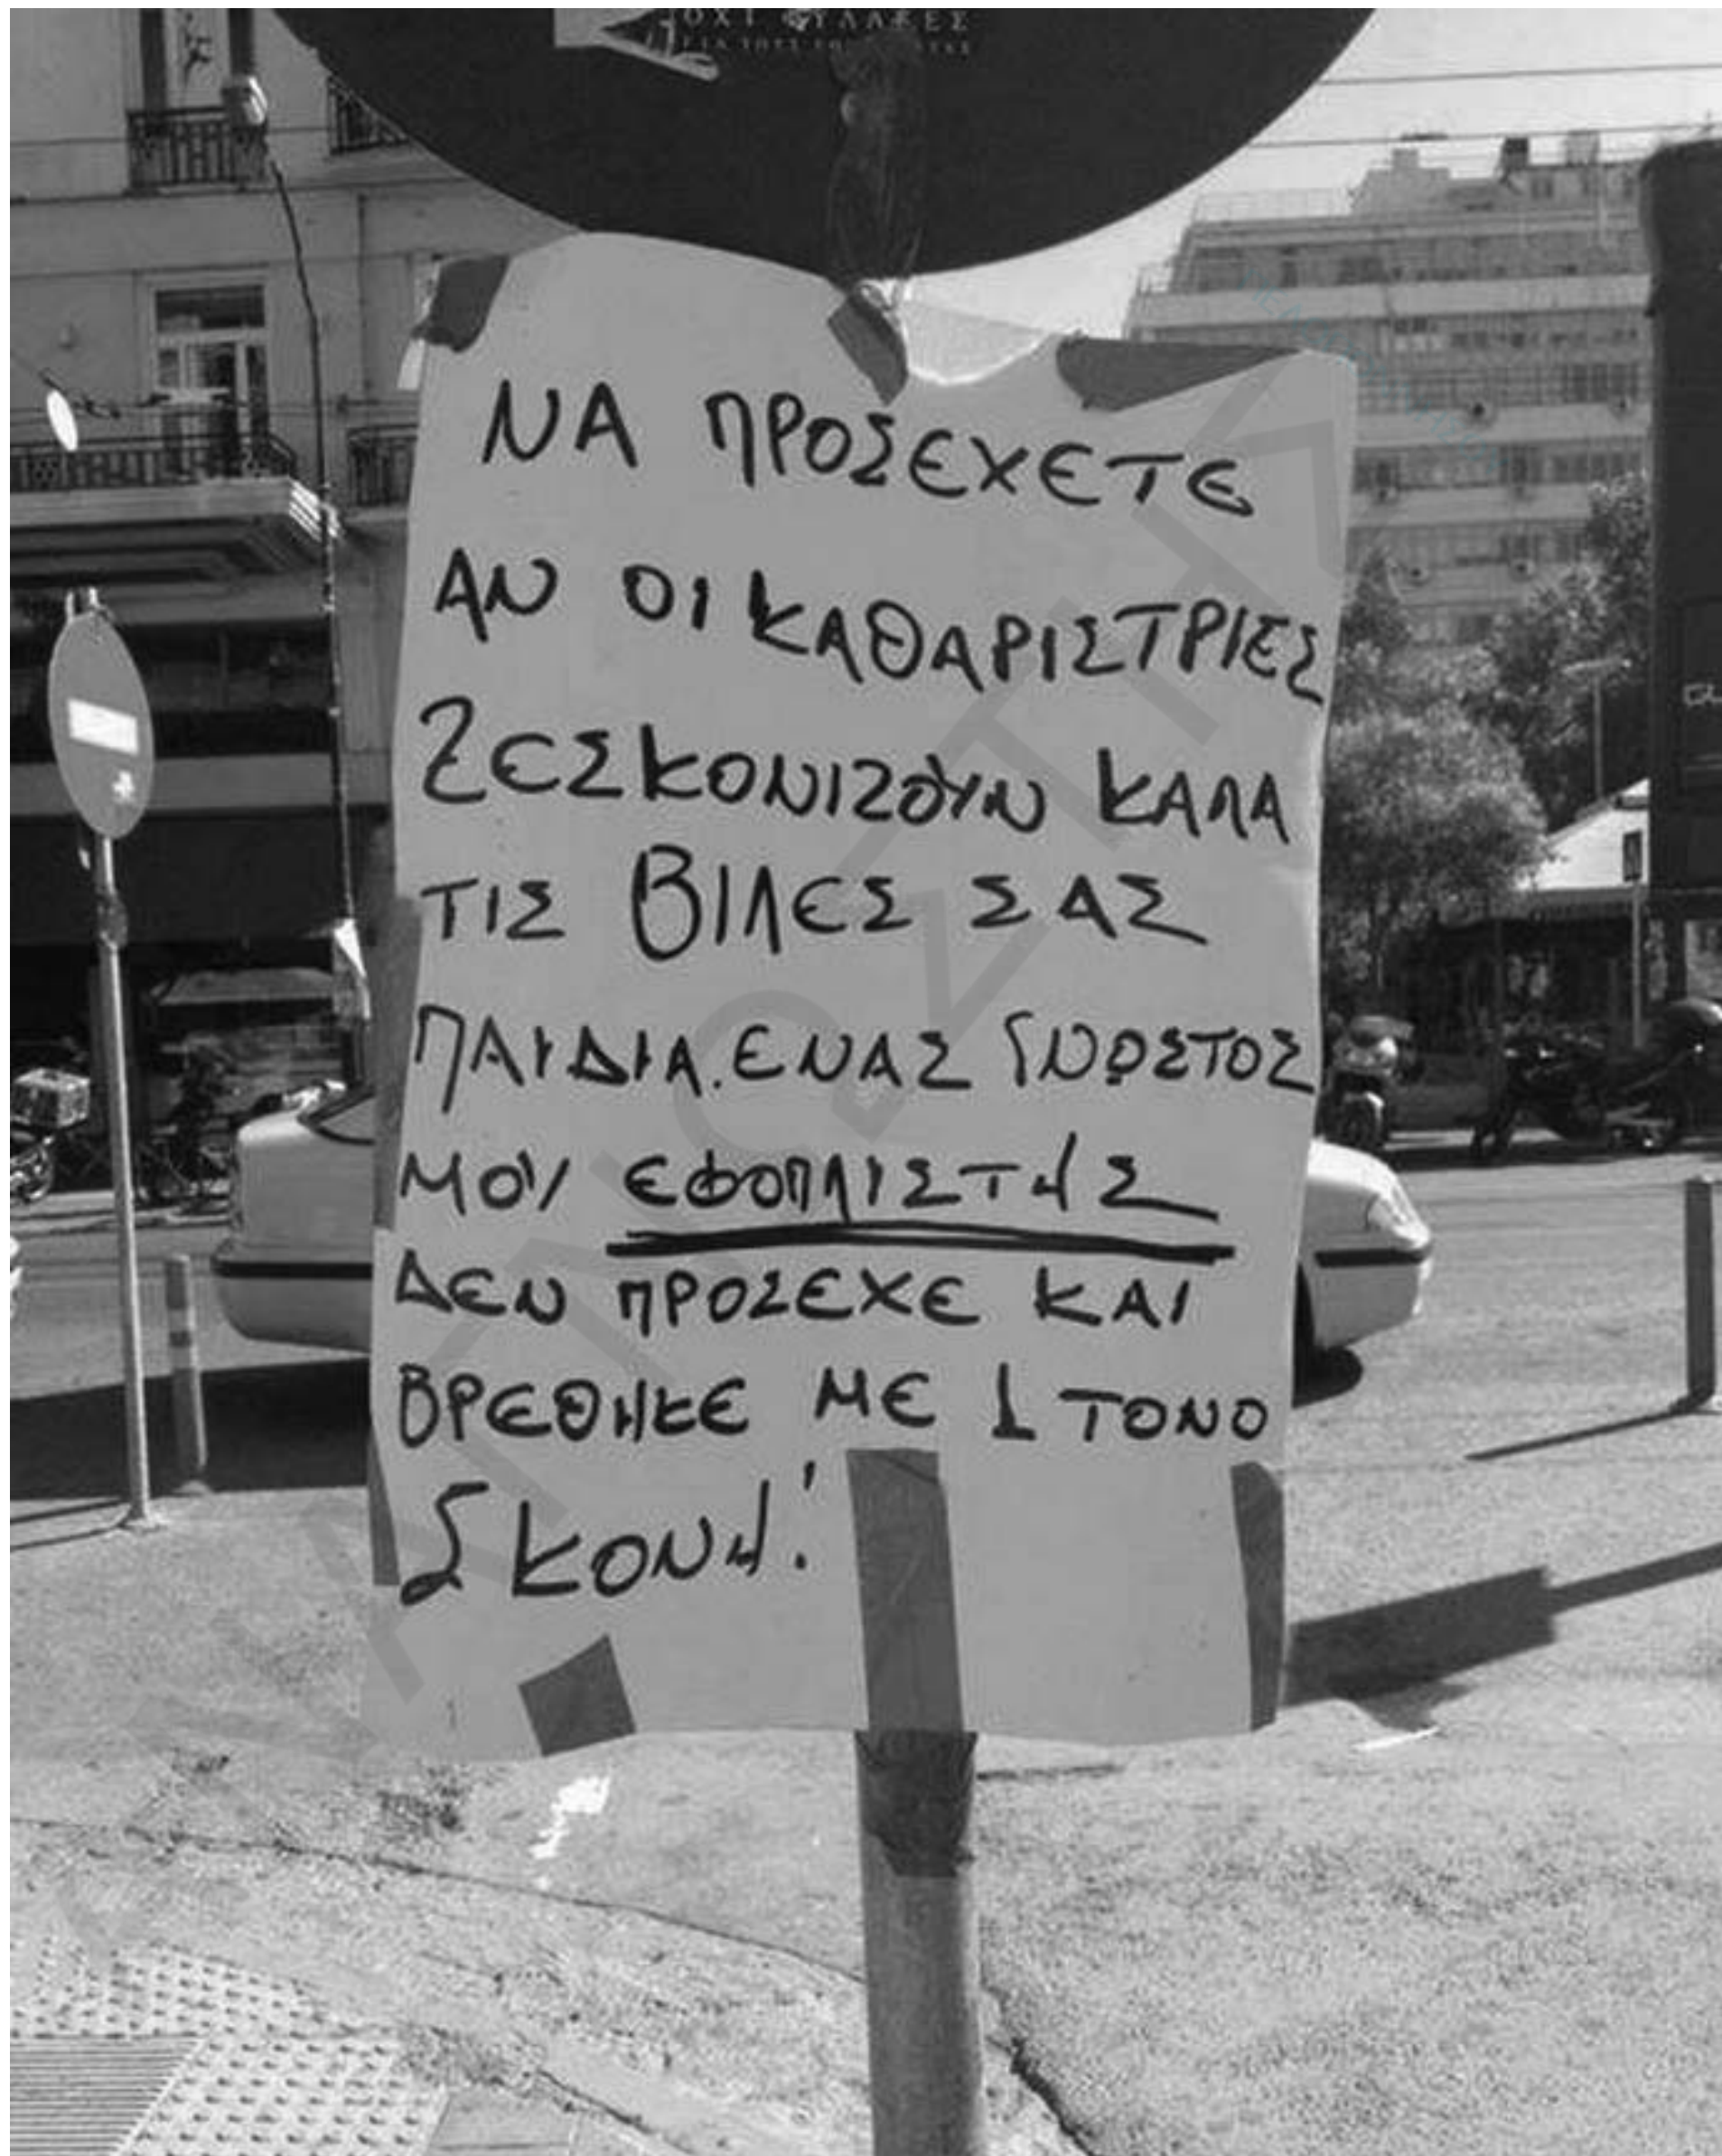 ΟΧΙ ΦΥΛΑΚΕΣ
ΝΑ ΠΡΟΣΕΧΕΤΕ
ΑΝ ΟΙ ΚΑΘΑΡΙΣΤΡΙΕΣ
ΞΕΣΚΟΝΙΖΟΥΝ ΚΑΛΑ
ΤΙΣ ΒΙΛΕΣ ΣΑΣ
ΠΑΙΔΙΑ. ΕΝΑΣ ΓΝΩΣΤΟΣ
ΜΟΥ ΕΦΟΠΛΙΣΤΗΣ
ΔΕΝ ΠΡΟΣΕΧΕ ΚΑΙ
ΒΡΕΘΗΚΕ ΜΕ 1 ΤΟΝΟ
ΣΚΟΝΗ!